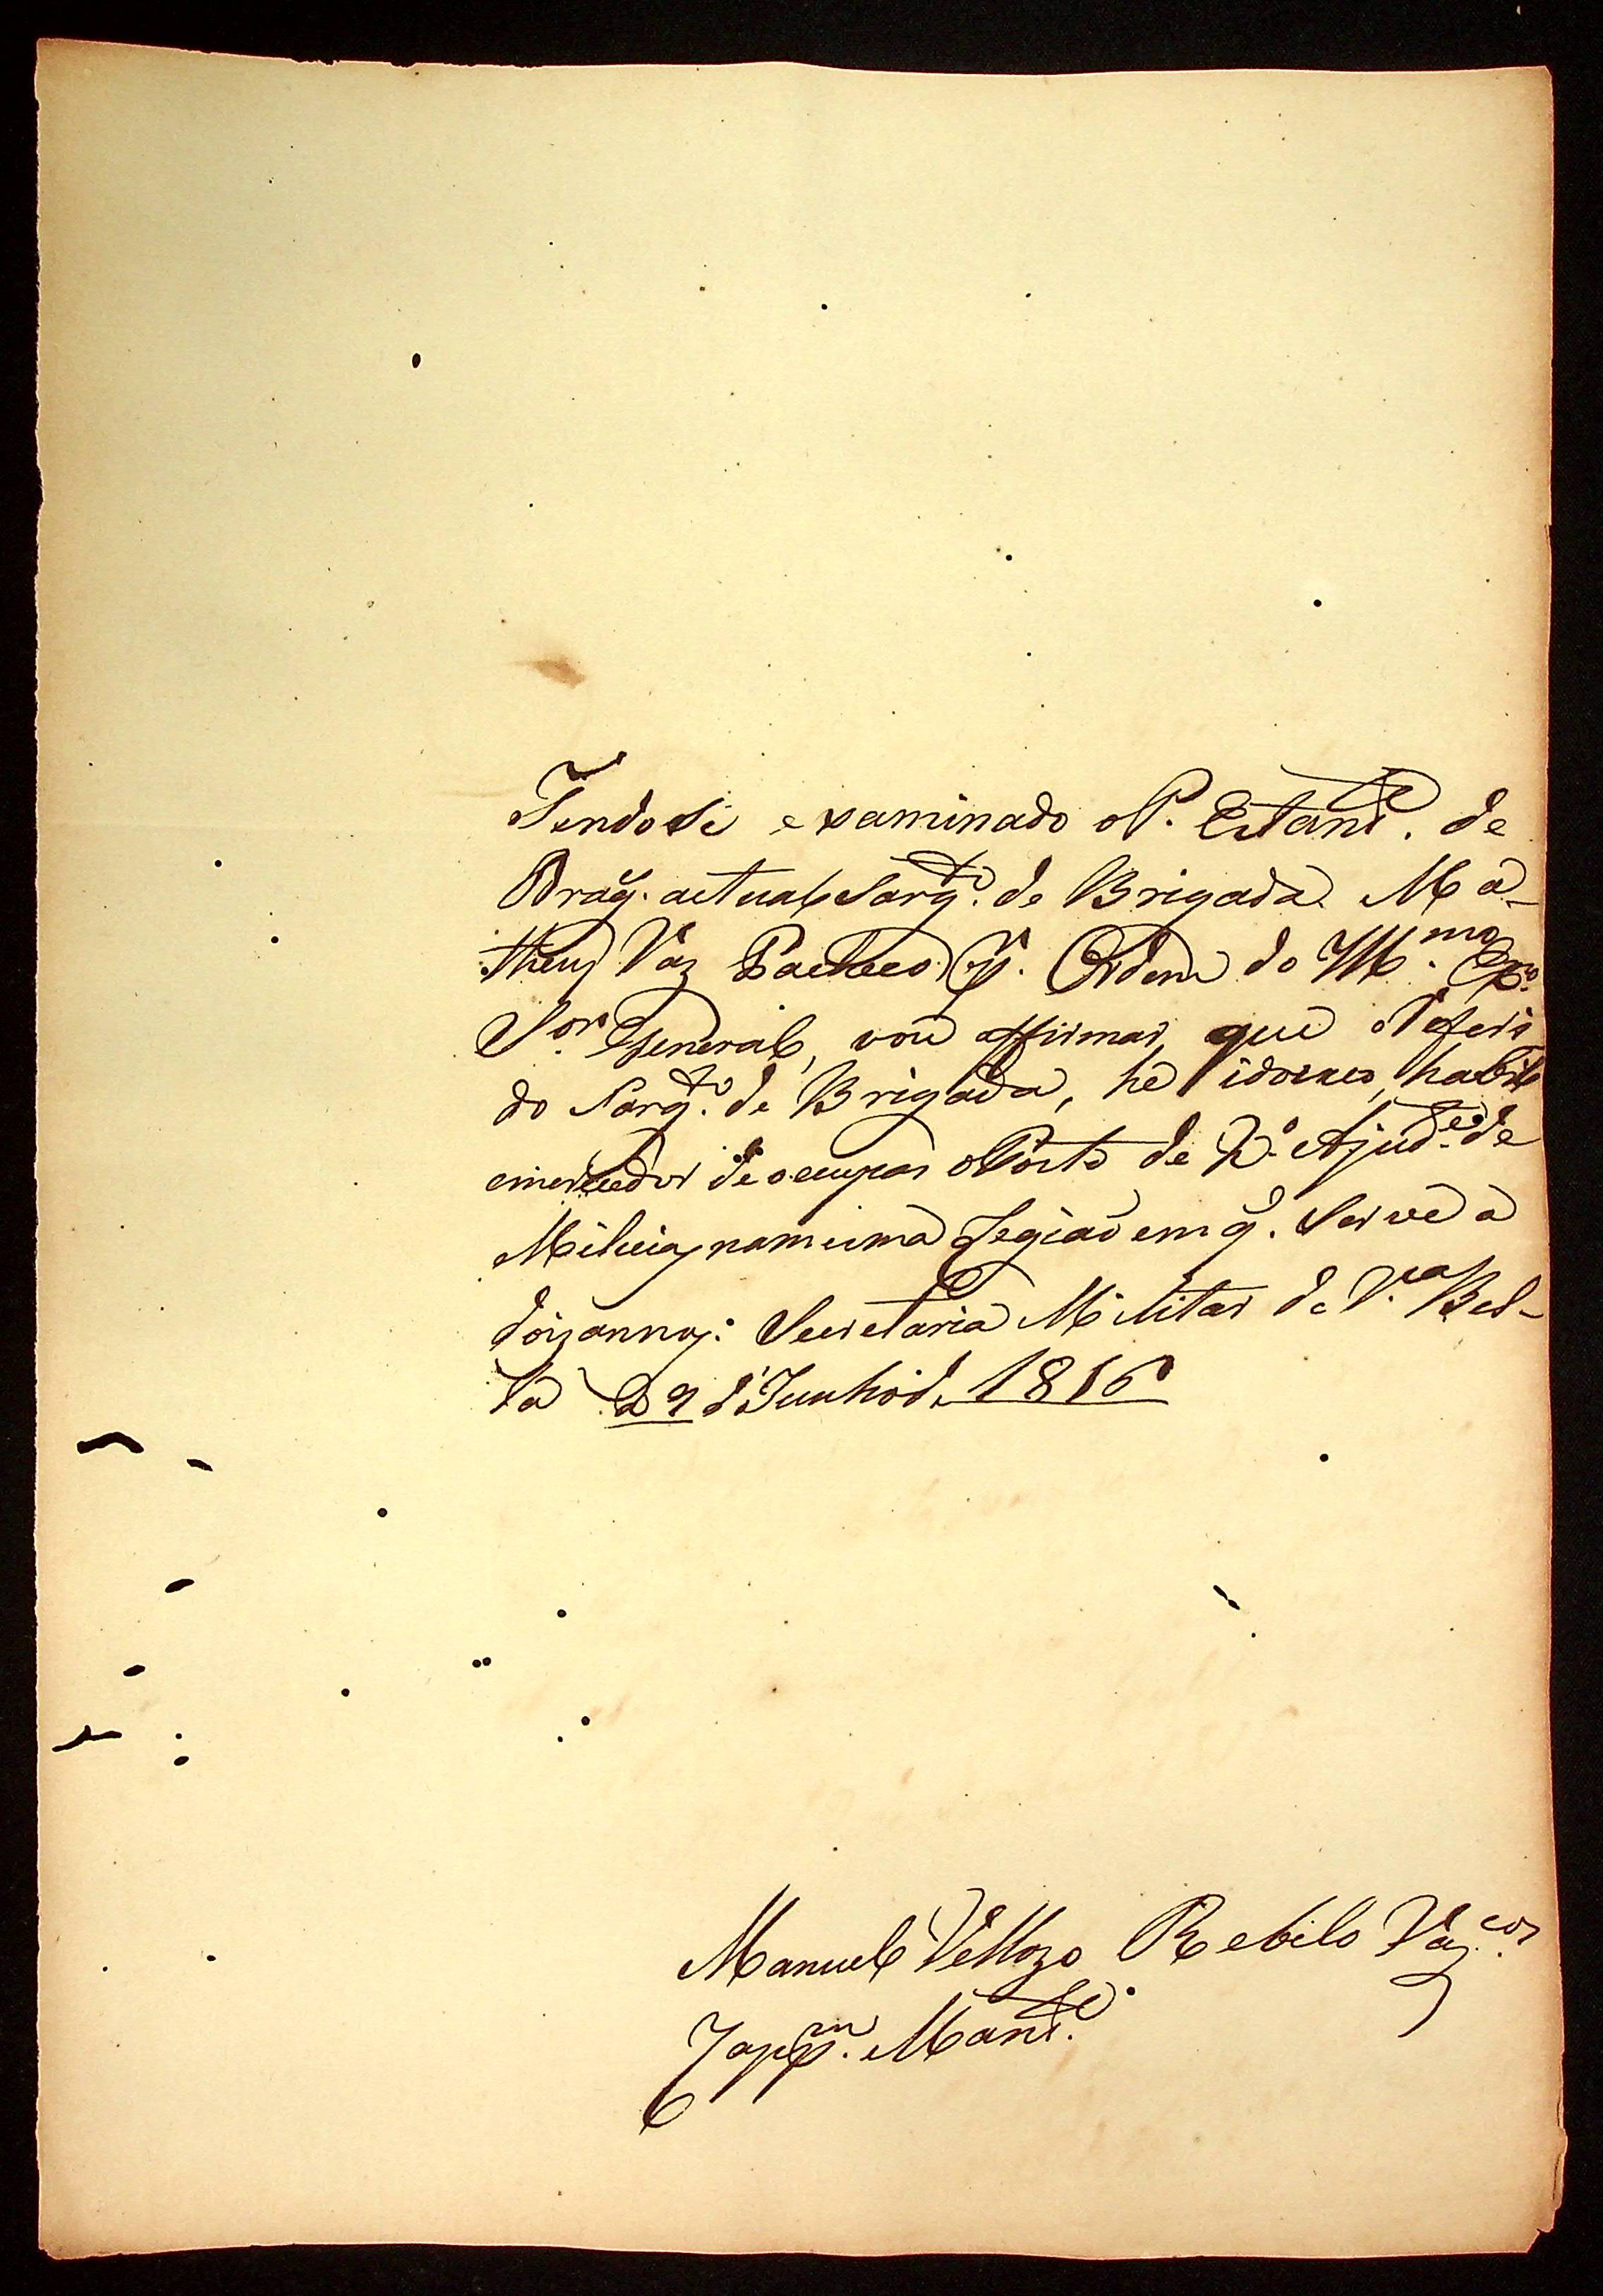 Tendose examinado o P. Estand.te de
Drag. actual Sarg.to de Brigada Ma-
theus Vaz Pacheco P. Ordem do Ill.mo Ex.mo
S.or General, vou affirmar, que o Referi
do Sarg.to de Brigada, he idoneo, habil
emerecedor de occupar o Posto de 2.º Ajud.e de
Milicias namesma Legiaõ em q. Serve a
dois annos: Secretaria Militar de V.a Bel-
la 29 d'Junho de 1816
Manuel Vellozo Rebelo Vas.cos
Cap.m Mand.e